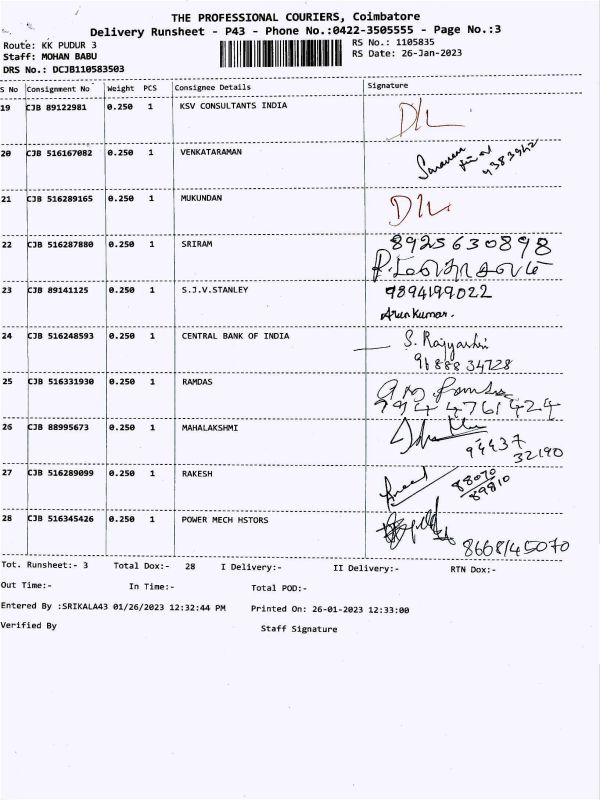 THE PROFESSIONAL COURIERS, Coimbatore
Delivery Runsheet - P43 - Phone No.:0422-3505555 - Page No.:3
Route: KK PUDUR 3 RS No.: 1105835
Staff: MOHAN BABU RS Date: 26-Jan-2023
DRS No.: DCJB110583503
S No Consignment No Weight PCS Consignee Details Signature
19 CJB 89122981 0.250 1 KSV CONSULTANTS INDIA D/L
20 CJB 516167082 0.250 1 VENKATARAMAN
21 CJB 516289165 0.250 1 MUKUNDAN D/L
22 CJB 516287880 0.250 1 SRIRAM 8925630898
23 CJB 89141125 0.250 1 S.J.V.STANLEY 9894199022
Arun Kumar.
24 CJB 516248593 0.250 1 CENTRAL BANK OF INDIA
25 CJB 516331930 0.250 1 RAMDAS
994 4761424
26 CJB 88995673 0.250 1 MAHALAKSHMI 94437
32190
27 CJB 516289099 0.250 1 RAKESH 88070
89810
28 CJB 516345426 0.250 1 POWER MECH HSTORS
8668145070
Tot. Runsheet:- 3 Total Dox:- 28 I Delivery:- II Delivery:- RTN Dox:-
Out Time:- In Time:- Total POD:-
Entered By :SRIKALA43 01/26/2023 12:32:44 PM Printed On: 26-01-2023 12:33:00
Verified By Staff Signature